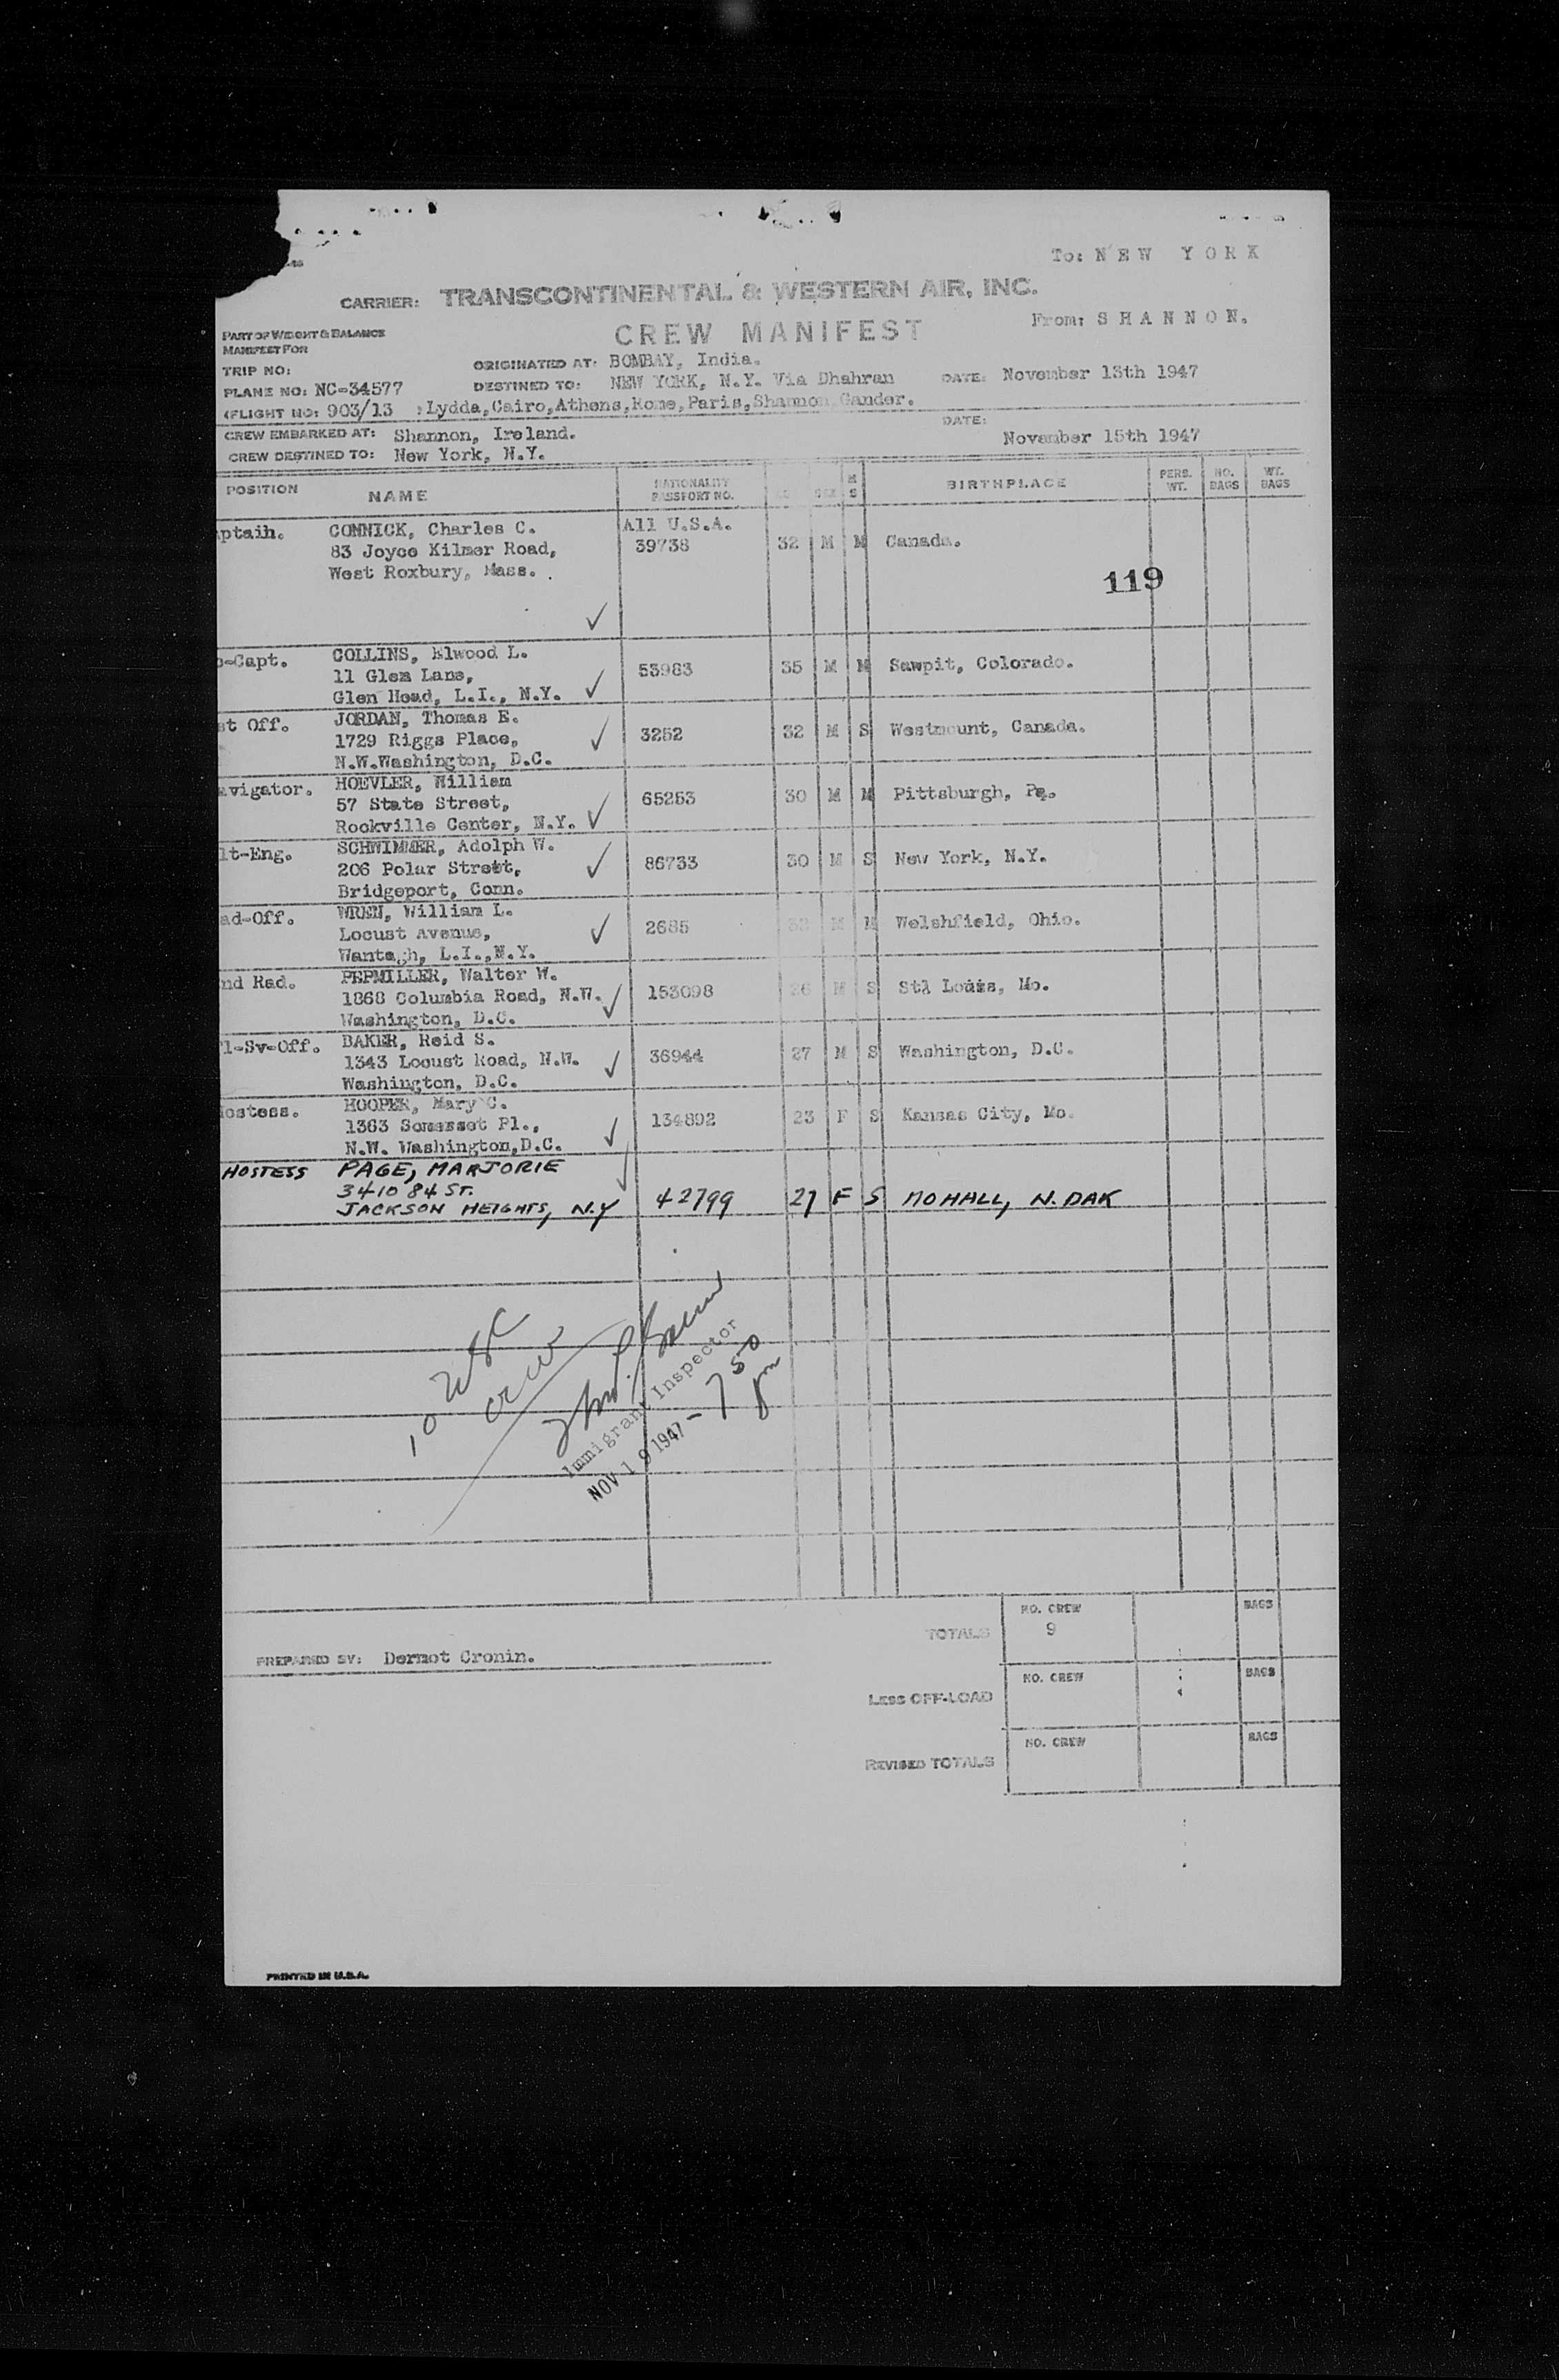 To: NEW YORK
CARRIER: TRANSCONTINENTAL & WESTERN AIR, INC.
From: SHANNON.
CREW MANIFEST
PART OF WEIGHT & BALANCE
MANIFEST FOR
TRIP NO:
ORIGINATED AT: BOMBAY, India.
PLANE NO: NC-34577
DESTINED TO: NEW YORK, N.Y. Via Dhahran
DATE: November 13th 1947
(FLIGHT NO: 903/13 :Lydda,Cairo,Athens,Rome,Paris,Shannon Gander.
CREW EMBARKED AT: Shannon, Ireland.
DATE: November 15th 1947
CREW DESTINED TO: New York, N.Y.
POSITION NAME NATIONALITY PASSPORT NO. SEX M S BIRTHPLACE PERS. WT. NO. BAGS WT. BAGS
ptain. CONNICK, Charles C. All U.S.A.
83 Joyce Kilmer Road, 39738 32 M M Canada.
West Roxbury, Mass.
119
o-Capt. COLLINS, Elwood L.
11 Glen Lane, 53983 35 M M Sawpit, Colorado.
Glen Head, L.I., N.Y.
st Off. JORDAN, Thomas E.
1729 Riggs Place, 3252 32 M S Westmount, Canada.
N.W.Washington, D.C.
avigator. HOEVLER, William
57 State Street, 65253 30 M M Pittsburgh, Pa.
Rockville Center, N.Y.
lt-Eng. SCHWIMMER, Adolph W.
206 Polar Street, 86733 30 M S New York, N.Y.
Bridgeport, Conn.
ad-Off. WREN, William L.
Locust Avenue, 2685 M M Welshfield, Ohio.
Wantagh, L.I.,N.Y.
nd Rad. PEPMILLER, Walter W.
1868 Columbia Road, N.W. 153098 26 M S Stl Louis, Mo.
Washington, D.C.
l-Sv-Off. BAKER, Reid S.
1343 Locust Road, N.W. 36944 27 M S Washington, D.C.
Washington, D.C.
ostess. HOOPER, Mary C.
1363 Somerset Pl., 134892 23 F S Kansas City, Mo.
N.W. Washington,D.C.
HOSTESS PAGE, MARJORIE
3410 84 ST.
JACKSON HEIGHTS, N.Y 42799 27 F S MOHALL, N. DAK
10 USC
crew
Immigrant Inspector
NOV 19 1947 - 7 50 pm
TOTALS NO. CREW 9 BAGS
PREPARED BY: Dermot Cronin.
LESS OFF-LOAD NO. CREW BAGS
REVISED TOTALS NO. CREW BAGS
PRINTED IN U.S.A.